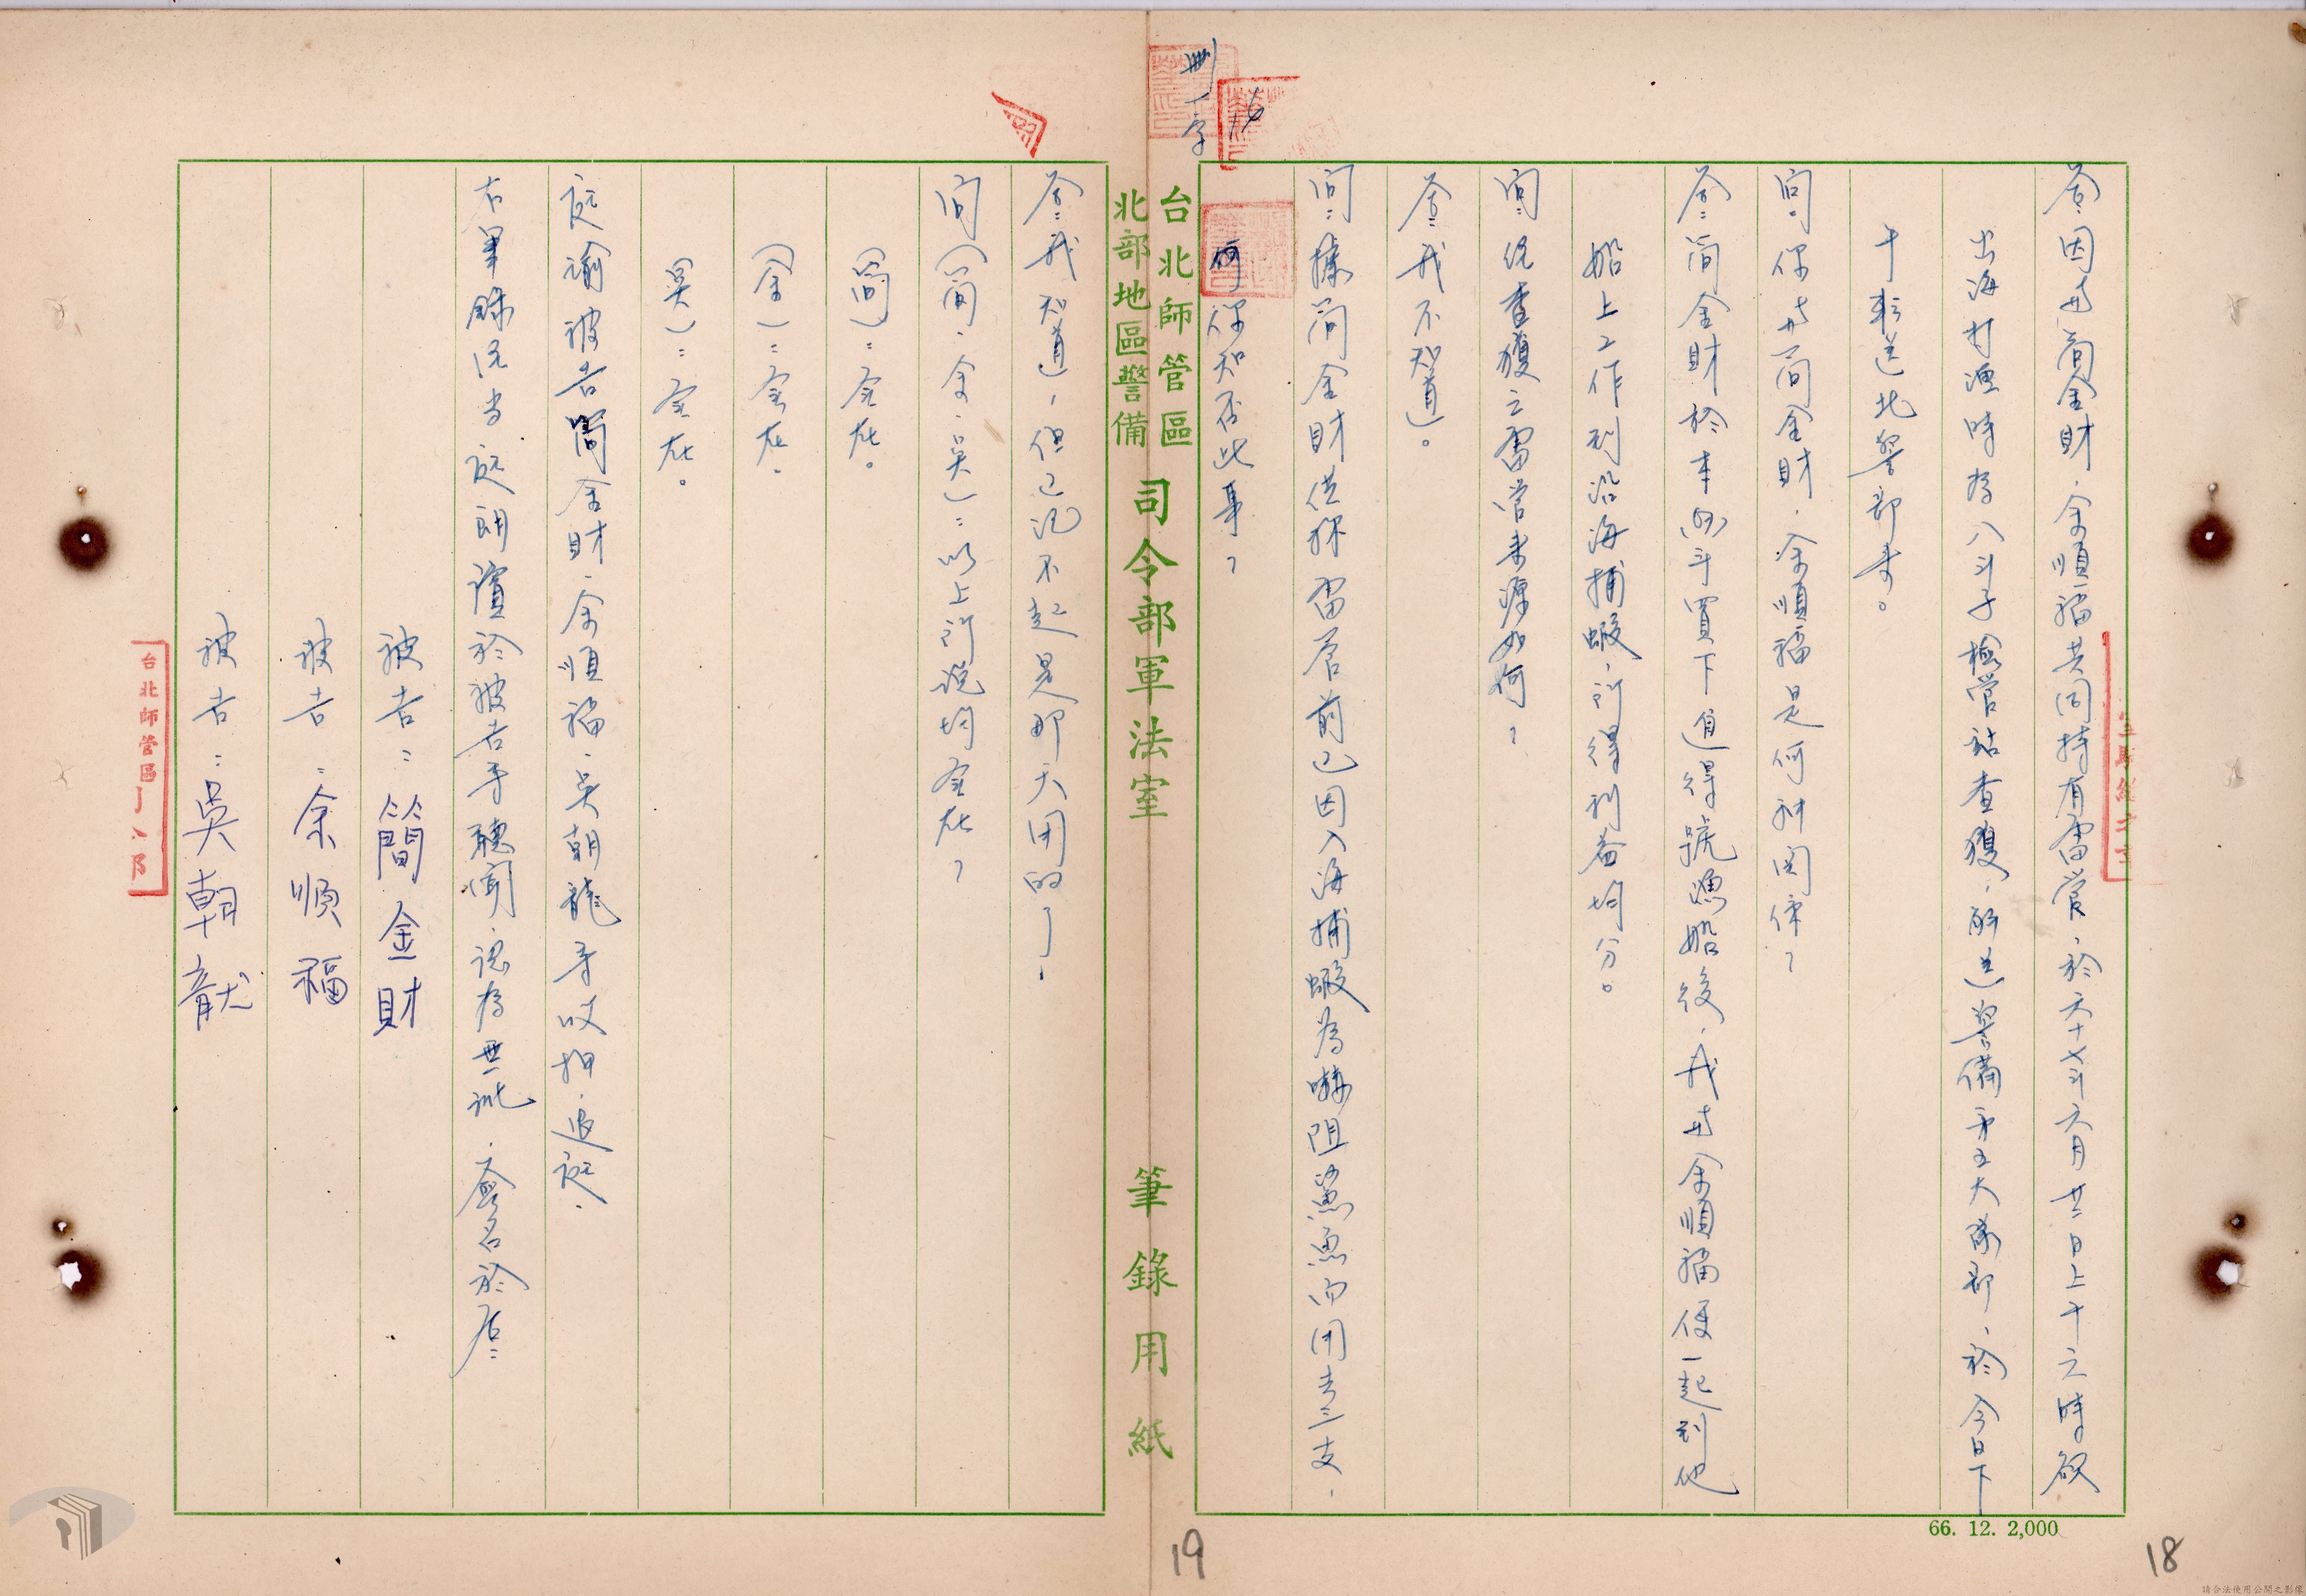 答:因与簡金財、余順福共同持有雷管,於六十七年六月廿二日上十六時欲
出海打漁時為八斗子檢管站查獲,解送警備第五大隊部,於今日下
午轉送北警部來。
問:你与簡金財、余順福是何種関係?
答:簡金財於本四年買下進得號漁船後,我与余順福便一起到他
船上工作到沿海捕蝦,所得利益均分。
問:現查獲之雷管來源如何?
答:我不知道。
問:據簡金財供稱雷管前已因入海捕蝦為嚇阻鯊魚而用去二支,
你知否此事?
刪一字
台北師管區
北部地區警備
司令部軍法室 筆錄用紙
答:我知道,但已記不起是那天用的了。
問(簡、余、吳):以上所說均實在?
(簡):實在。
(余):實在。
(吳):實在。
庭諭被告簡金財、余順福、吳朝龍予以收押,退庭。
右筆錄經當庭朗讀於被告等聽聞,認為無訛,簽名於后:
被告:簡金財
被告:余順福
被告:吳朝龍
台北師管區
66. 12. 2,000
19
18
請合法使用公開之影像